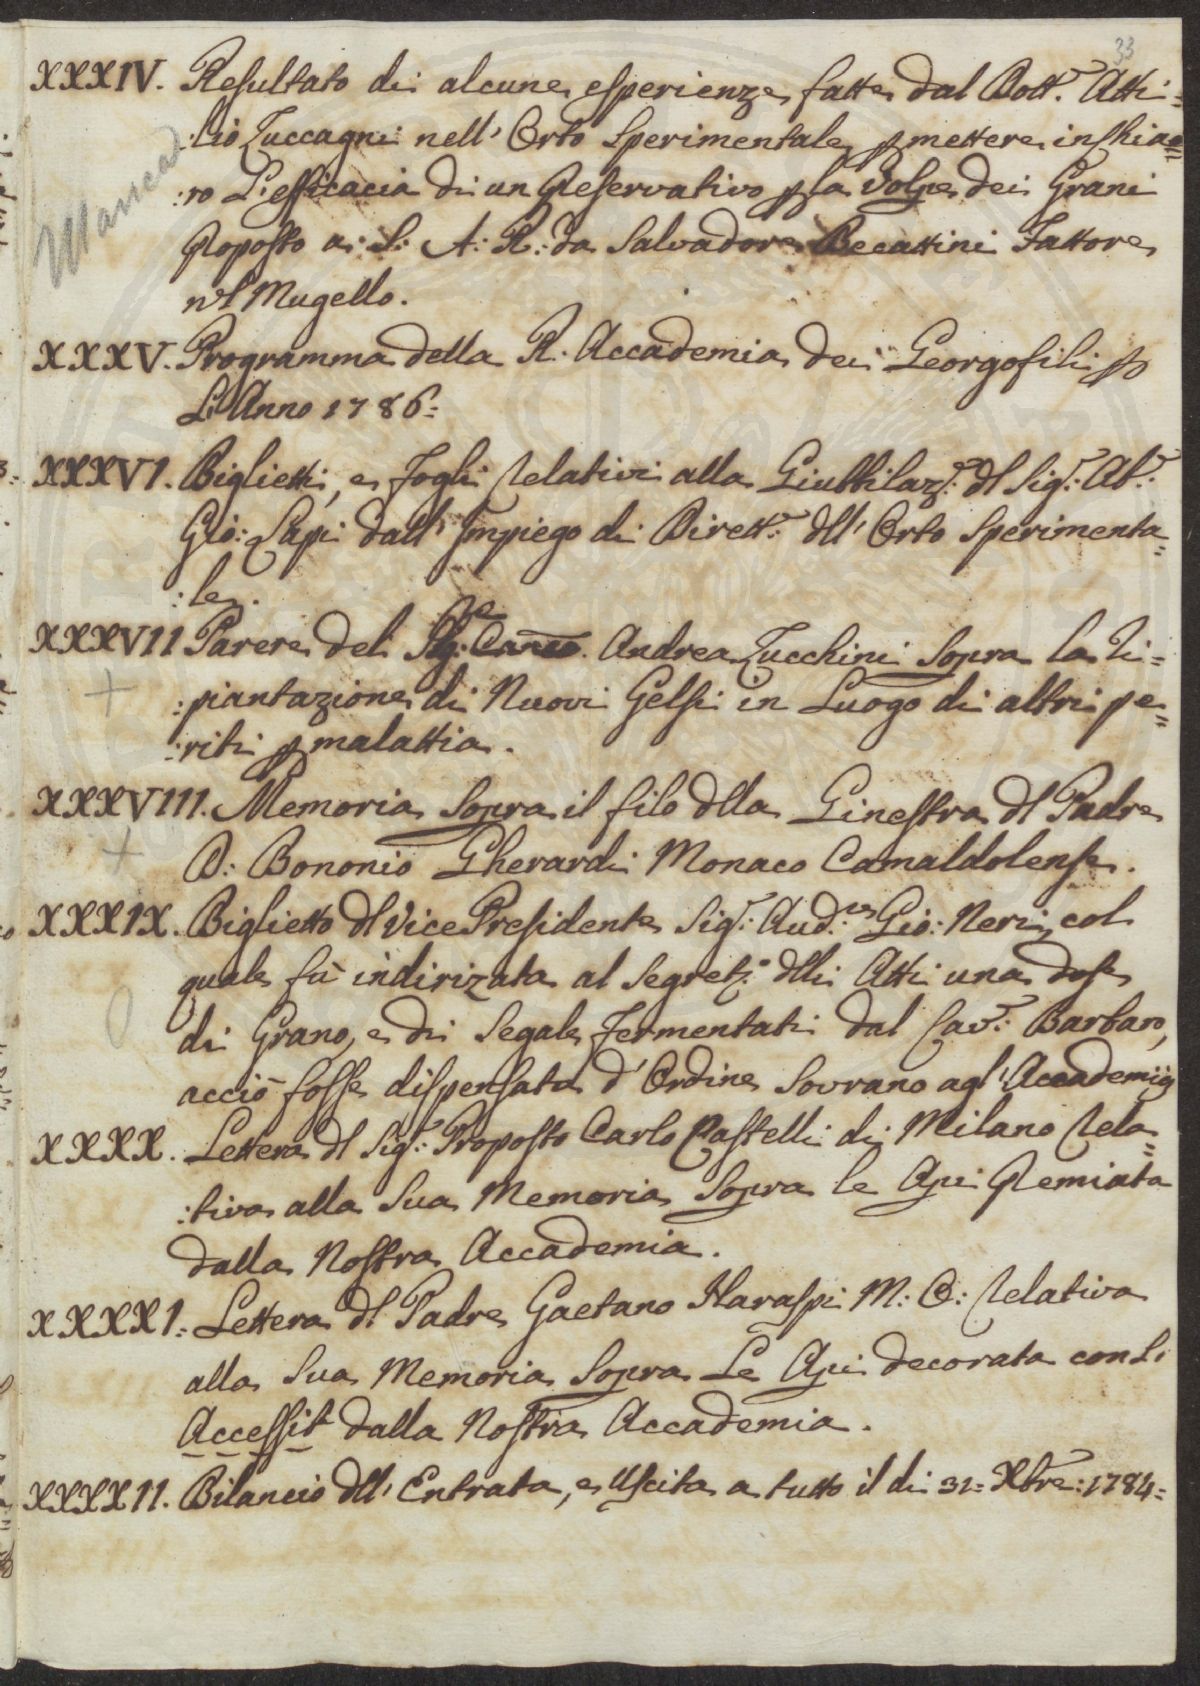 33
XXXIV. Resultato di alcune esperienze fatte dal Dott.r Atti=
:lio Zuccagni nell' Orto Sperimentale p mettere in Chia=
:ro L'efficacia di un Preservativo p la Volpe dei Grani
Proposto a: S: A: R: da Salvadore Becattini Fattore
nel Mugello.
XXXV. Programma della R. Accademia dei Georgofili p
L'Anno 1786:
XXXVI. Biglietti, e fogli relativi alla Giubbilaz.e dl Sig.r Ab.e
Gio: Lapi dall' Impiego di Dirett.e dll' Orto Sperimenta=
:le.
XXXVII Parere del Andrea Zucchini Sopra la Ri=
:piantazione di Nuovi Gelsi in Luogo di altri pe=
:riti p malattia.
XXXVIII. Memoria Sopra il filo dlla Ginestra dl Padre
D: Bononio Gherardi Monaco Camaldolense.
XXXIX. Biglietto dl Vice Presidente Sig.r Aud.re Gio: Neri, col
quale fù indirizata al Segret.o dlli Atti una dose
di Grano, e di Segale fermentati dal Cav.r Barbaro,
acciò fosse dispensata d' Ordine Sovrano agl' Accademici
XXXX. Lettera dl Sig.r Proposto Carlo Castelli di Milano rela=
:tiva alla Sua Memoria Sopra le Api Premiata
dalla Nostra Accademia.
XXXXI. Lettera dl Padre Gaetano Haraspi M: O: relativa
alla Sua Memoria Sopra Le Api decorata con L'
Accessit dalla Nostra Accademia.
XXXXII. Bilancio dll' Entrata, e Uscita a tutto il di 31= Xbre: 1784=